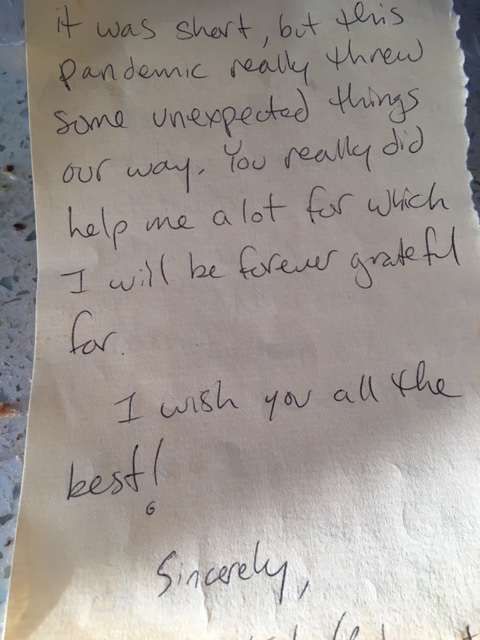 it was short, but this
pandemic really threw
some unexpected things
our way. You really did
help me a lot for which
I will be forever grateful
for.
I wish you all the
best!
Sincerely,